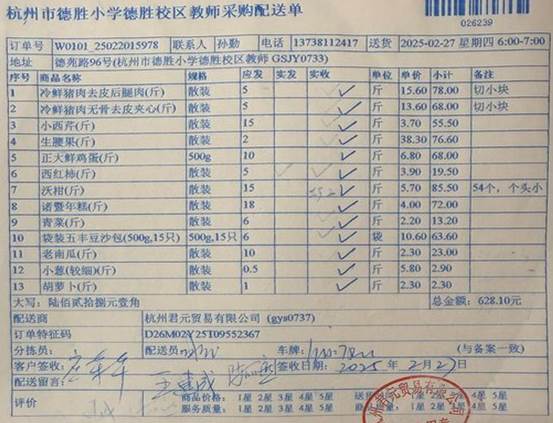 杭州市德胜小学德胜校区教师采购配送单
026239
订单号 W0101_25022015978 联系人 孙勤 电话 13738112417 送货 2025-02-27 星期四 6:00-7:00
地址 德苑路96号(杭州市德胜小学德胜校区教师 GSJY0733)
序号 商品名称 规格 应发 实发 实收 单位 单价 小计 备注
1 冷鲜猪肉去皮后腿肉(斤) 散装 5 斤 15.60 78.00 切小块
2 冷鲜猪肉无骨去皮夹心(斤) 散装 5 斤 13.60 68.00 切小块
3 小西芹(斤) 散装 15 斤 3.70 55.50
4 生腰果(斤) 散装 2 斤 38.30 76.60
5 正大鲜鸡蛋(斤) 500g 10 斤 6.80 68.00
6 西红柿(斤) 散装 5 斤 3.90 19.50
7 沃柑(斤) 散装 15 斤 5.70 85.50 54个，个头小
8 诸暨年糕(斤) 散装 18 斤 4.00 72.00
9 青菜(斤) 散装 6 斤 2.20 13.20
10 袋装五丰豆沙包(500g,15只) 500g,15只 6 袋 10.60 63.60
11 老南瓜(斤) 散装 10 斤 2.30 23.00
12 小葱(较细)(斤) 散装 0.5 斤 5.80 2.90
13 胡萝卜(斤) 散装 1 斤 2.30 2.30
大写: 陆佰贰拾捌元壹角 总金额: 628.10元
配送商 杭州君元贸易有限公司 (gys0737)
订单特征码 D26M02Y25T09552367
分拣员: 配送员: 车牌: (与备案一致)
客户签收: 签收日期: 2025年2月27日
配送留言
评价 商品价格: 1星 2星 3星 4星 5星 送货 1星 2星 3星 4星 5星
服务质量: 1星 2星 3星 4星 5星 商 1星 2星 3星 4星 5星
杭州君元贸易有限公司